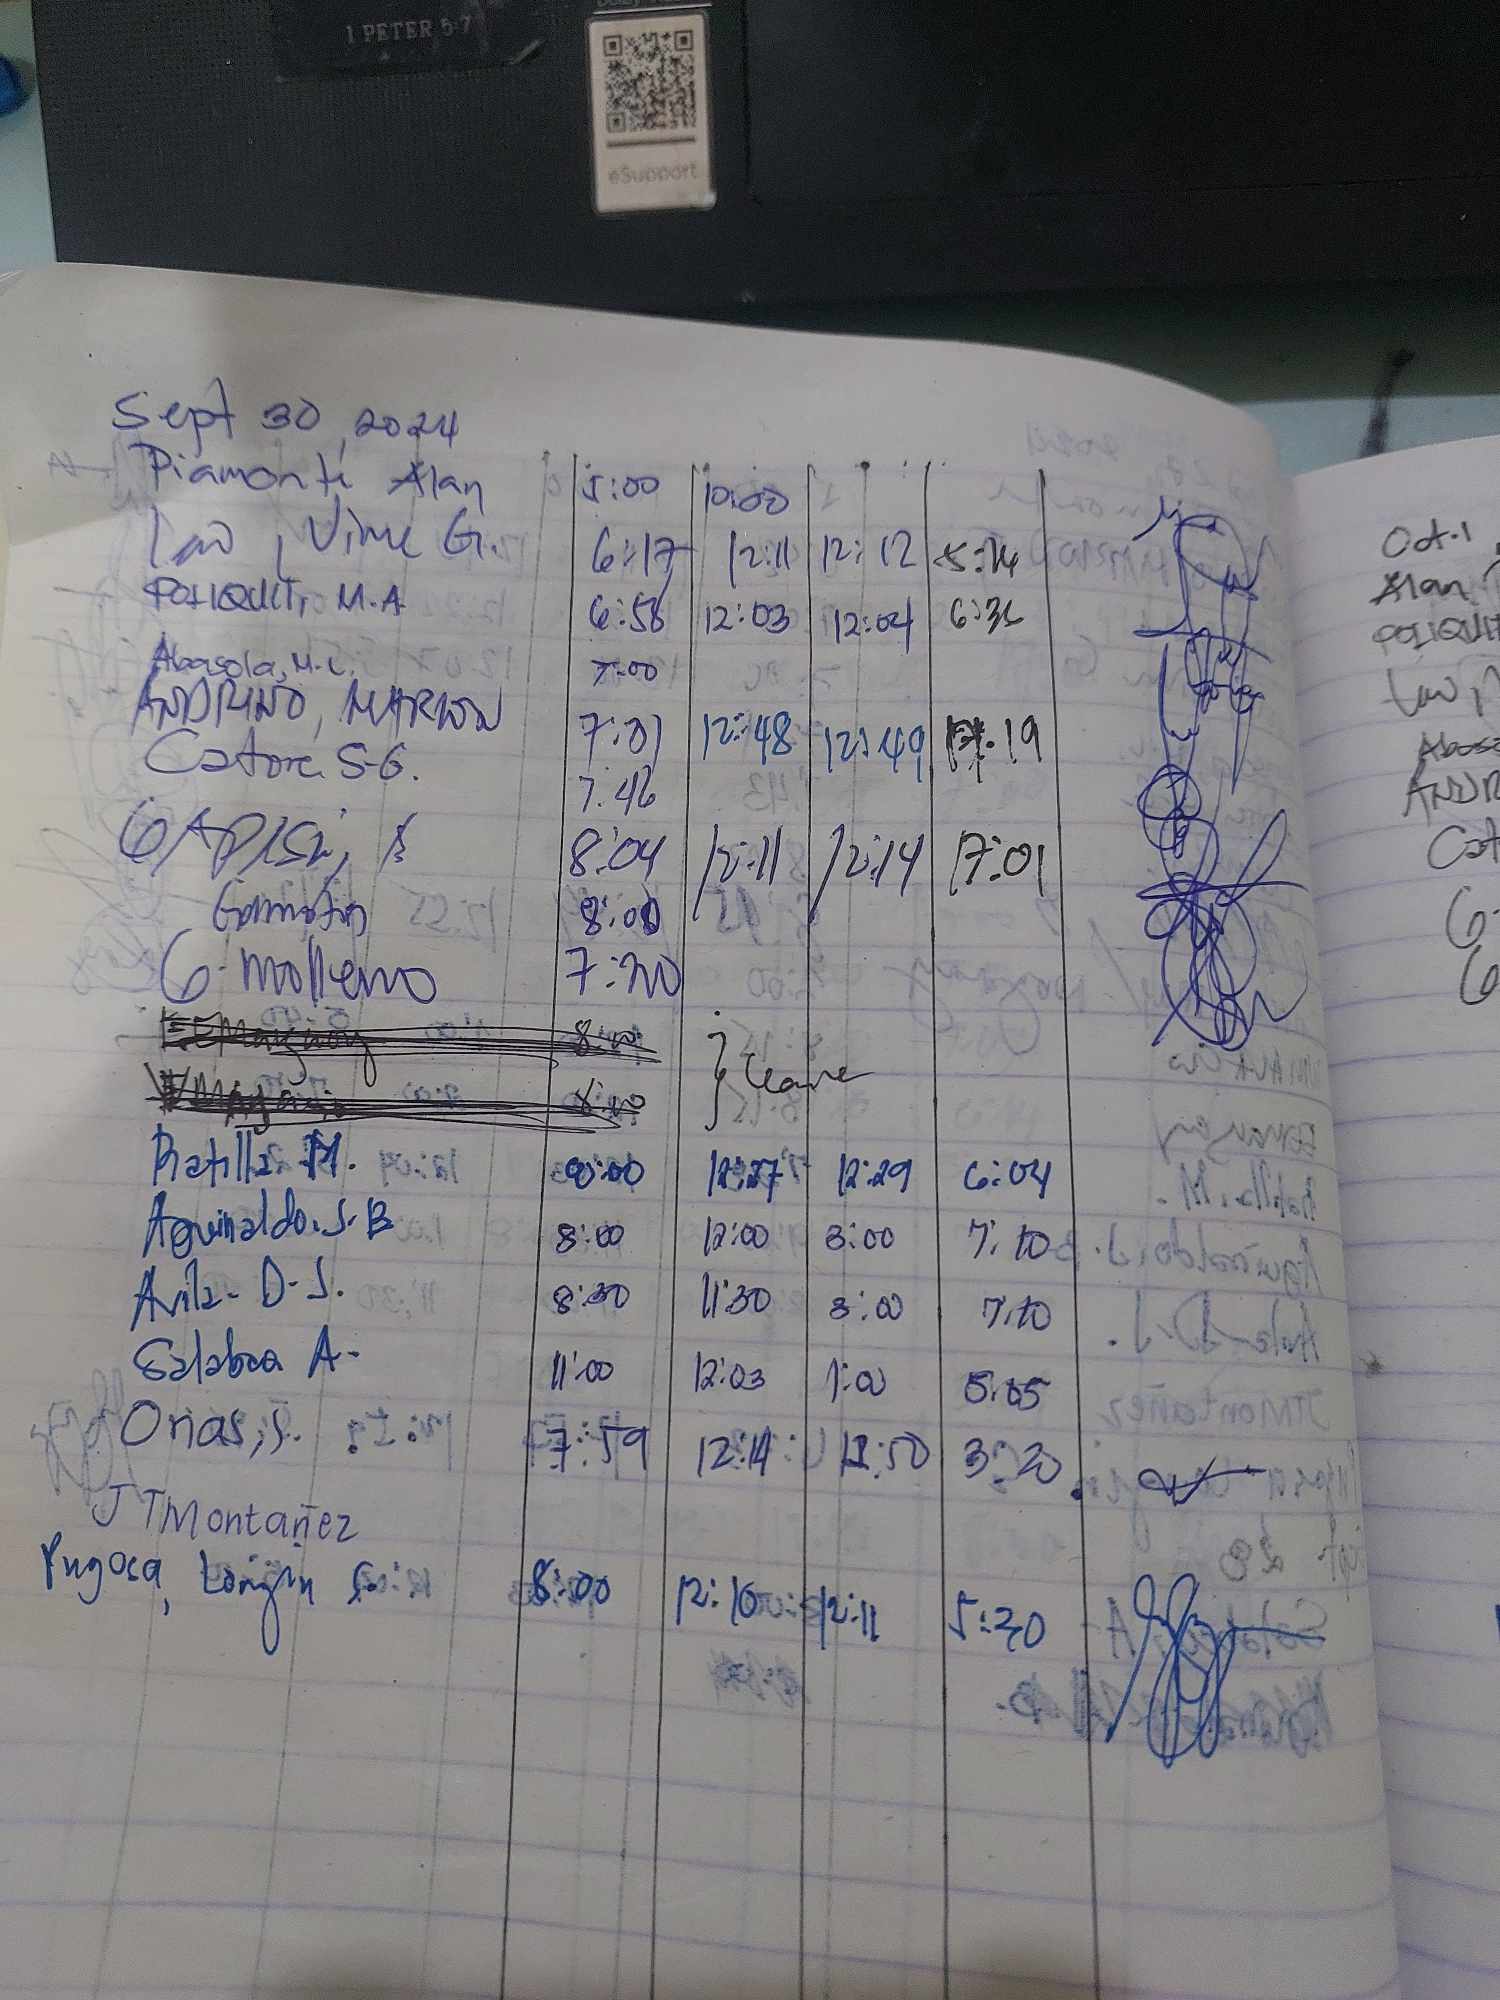 1 PETER 5:7
eSupport
Sept 30, 2024
Piamonte Alan 5:00 10:00
Law, Vime G. 6:17 12:11 12:12 5:14
POLIQUIT, M.A 6:58 12:03 12:04 6:36
Abasola, M.C. 7:00
ANDRINO, MARLON 7:01 12:48 12:49 19
Catore S.G. 7:46
8:04 12:11 12:14 17:01
8:00
G. Molleno 7:20
8:00
Leave
8:00
Batilla M. 8:00 12:27 12:29 6:04
Aguinaldo, J.B 8:00 12:00 3:00 7:10
Avila D.J. 8:30 11:30 3:00 7:10
Salaboa A. 11:00 12:03 1:00 5:05
Onas, J. 7:59 12:14 12:50 3:20
JTMontañez
Pugosa, Longin S. 8:00 12:10 12:11 5:20
Oct.1
Alan
POLIQUIT
Law,
Abaso
ANDR
Cat
G
G